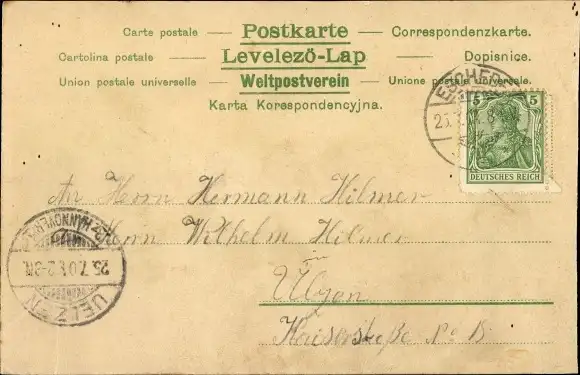 Carte postale — Postkarte — Correspondenzkarte.
Cartolina postale — Levelező-Lap — Dopisnice.
Union postale universelle — Weltpostverein — Unione postale universale.
Karta Korespondencyjna.
5 5
DEUTSCHES REICH
An Herrn Hermann Hilmer
Herrn Wilhelm Hilmer
Ülzen
Kaiserstraße No 13
HANNOVER
25.7.03
UELZEN